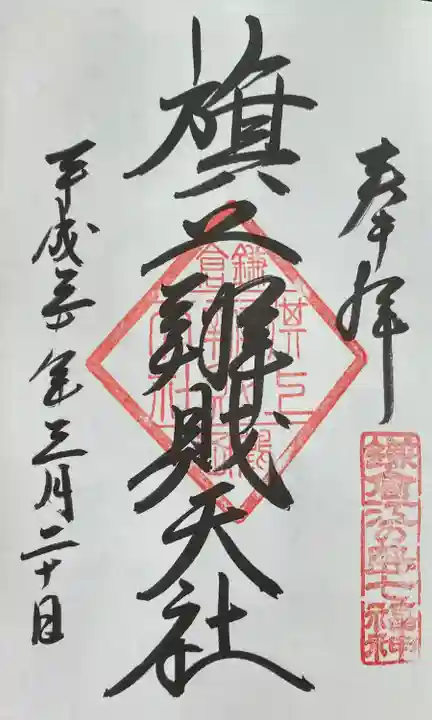 奉拝
鎌倉江の島七福神
旗上辨財天社
平成三十一年三月二十日